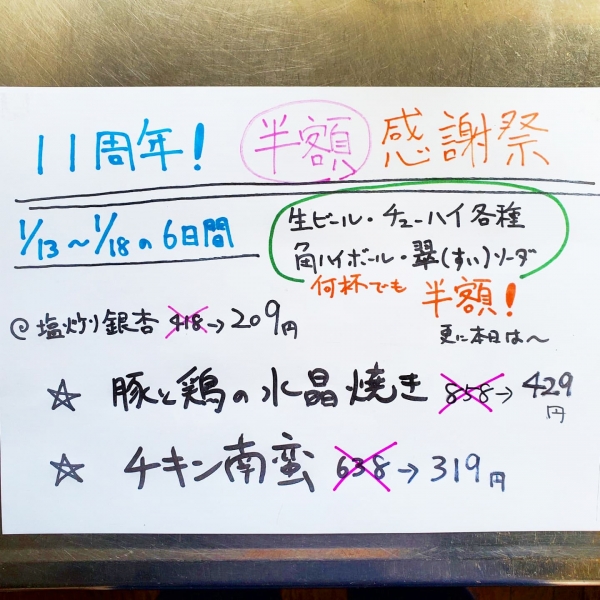 11周年! 半額 感謝祭
1/13~1/18の6日間
生ビール・チューハイ各種
角ハイボール・翠(すい)ソーダ
何杯でも 半額!
更に本日は~
@塩炒り銀杏 418→209円
☆ 豚と鶏の水晶焼き 858→429円
☆ チキン南蛮 638→319円